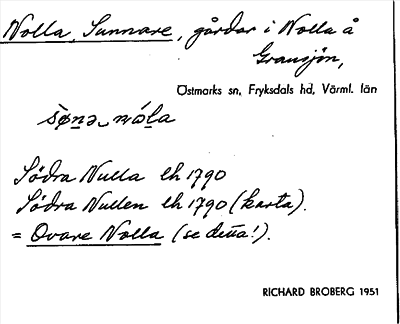 Nolla, Sunnare, gårdar i Nolla å
Gransjön,
Östmarks sn, Fryksdals hd, Värml. län
Södra Nulla lh 1790
Södra Nullen lh 1790 (karta).
= Ovare Nolla (se detta!).
RICHARD BROBERG 1951